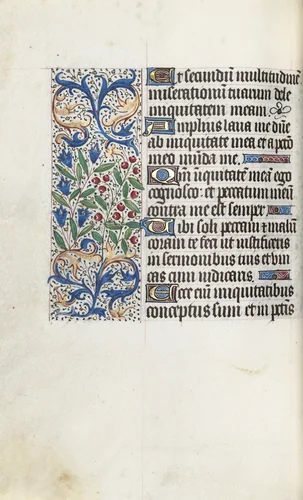 Et secundū multitudinē
miserationum tuarum dele
iniquitatem meam.
Amplius laua me dn̄e
ab iniquitate mea et a pctō
meo munda me.
Qm̄ iniquitatē meā ego
cognosco: et peccatum meū
contra me est semper
Tibi soli peccaui et malū
coram te feci ut iustificeris
in sermonibus tuis et vin
cas cum iudicaris.
Ecce em̄ iniquitatibus
conceptus sum et in pctīs